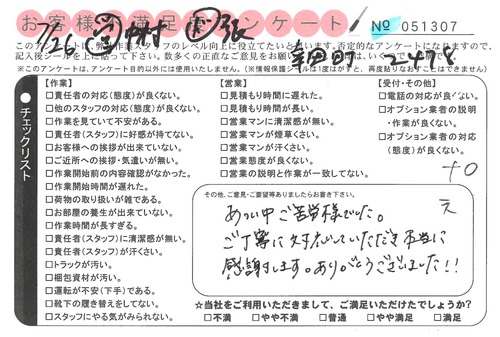 お客様満足度アンケート
№ 051307
7/26 営 中村 作 張
幸田町 2-478
このアンケートは、弊社作業スタッフのレベル向上に役立てたいと思います。否定的なアンケートになりますので、
記入後シールを上に貼って下さい。数多くの正直なご意見をお願い
※このアンケートは、アンケート目的以外には使用いたしません。(※情報保護シールは1度はがすと、再度貼りなおすことはできません)
チェックリスト
【作業】
□責任者の対応(態度)が良くない。
□他のスタッフの対応(態度)が良くない。
□作業を見ていて不安がある。
□責任者(スタッフ)に好感が持てない。
□お客様への挨拶が出来ていない。
□ご近所への挨拶・気遣いが無い。
□作業開始前の内容確認がなかった。
□作業開始時間が遅れた。
□荷物の取り扱いが雑である。
□お部屋の養生が出来ていない。
□作業時間が長すぎる。
□責任者(スタッフ)に清潔感が無い。
□責任者(スタッフ)が汗くさい。
□トラックが汚い。
□梱包資材が汚い。
□運転が不安(下手)である。
□靴下の履き替えをしてない。
□スタッフにやる気がみられない。
【営業】
□見積もり時間に遅れた。
□見積もり時間が長い。
□営業マンに清潔感が無い。
□営業マンが煙草くさい。
□営業マンが汗くさい。
□営業態度が良くない。
□営業の説明と作業が一致してない。
【受付・その他】
□電話の対応が良くない。
□オプション業者の説明
・作業が良くない。
□オプション業者の対応
(態度)が良くない。
+0
その他、ご意見・ご要望等ありましたらお書き下さい。
あつい中ご苦労様でした。
ご丁寧に対応していただき本当に
感謝します。ありがとうございました!!
え
☆当社をご利用いただきまして、ご満足いただけたでしょうか?
□不満 □やや不満 □普通 □やや満足 □満足